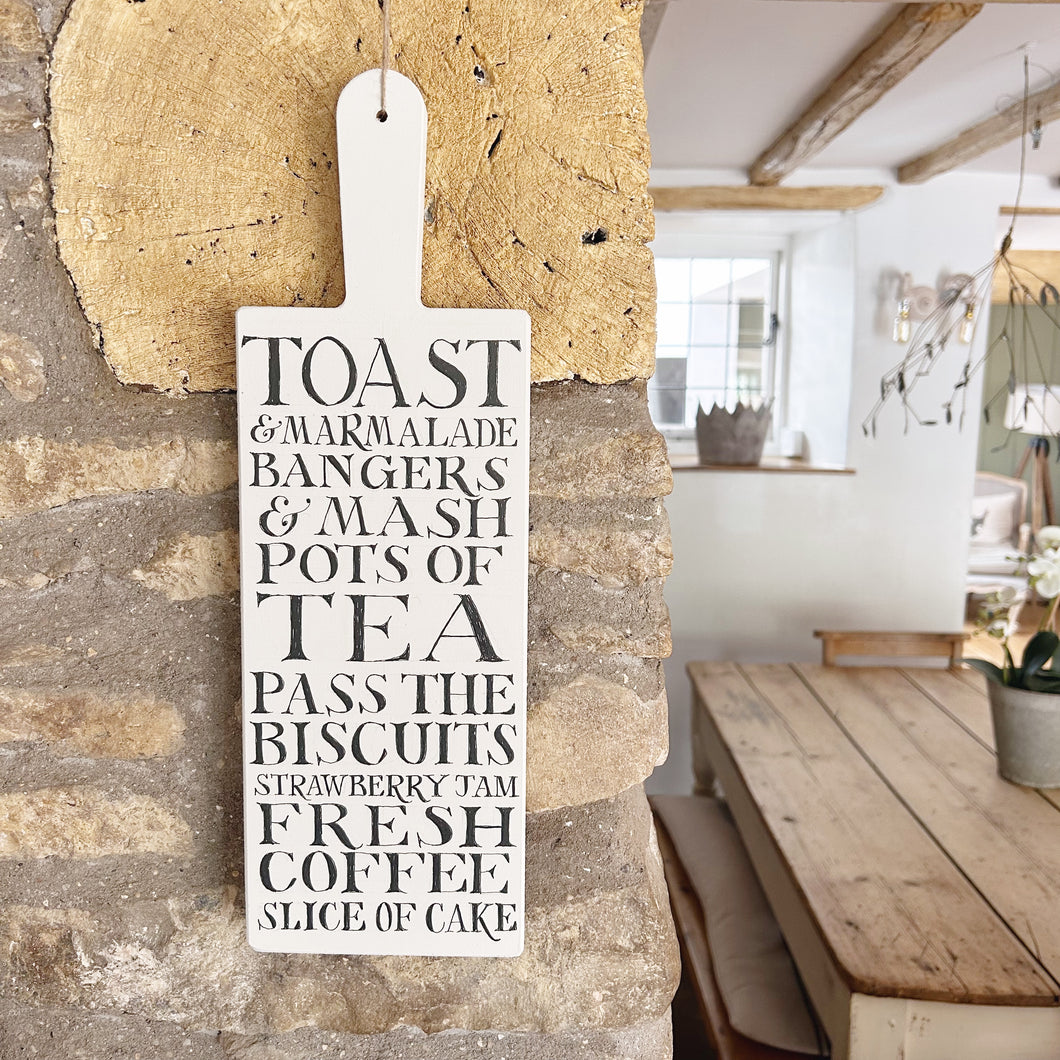 TOAST
& MARMALADE
BANGERS
& MASH
POTS OF
TEA
PASS THE
BISCUITS
STRAWBERRY JAM
FRESH
COFFEE
SLICE OF CAKE